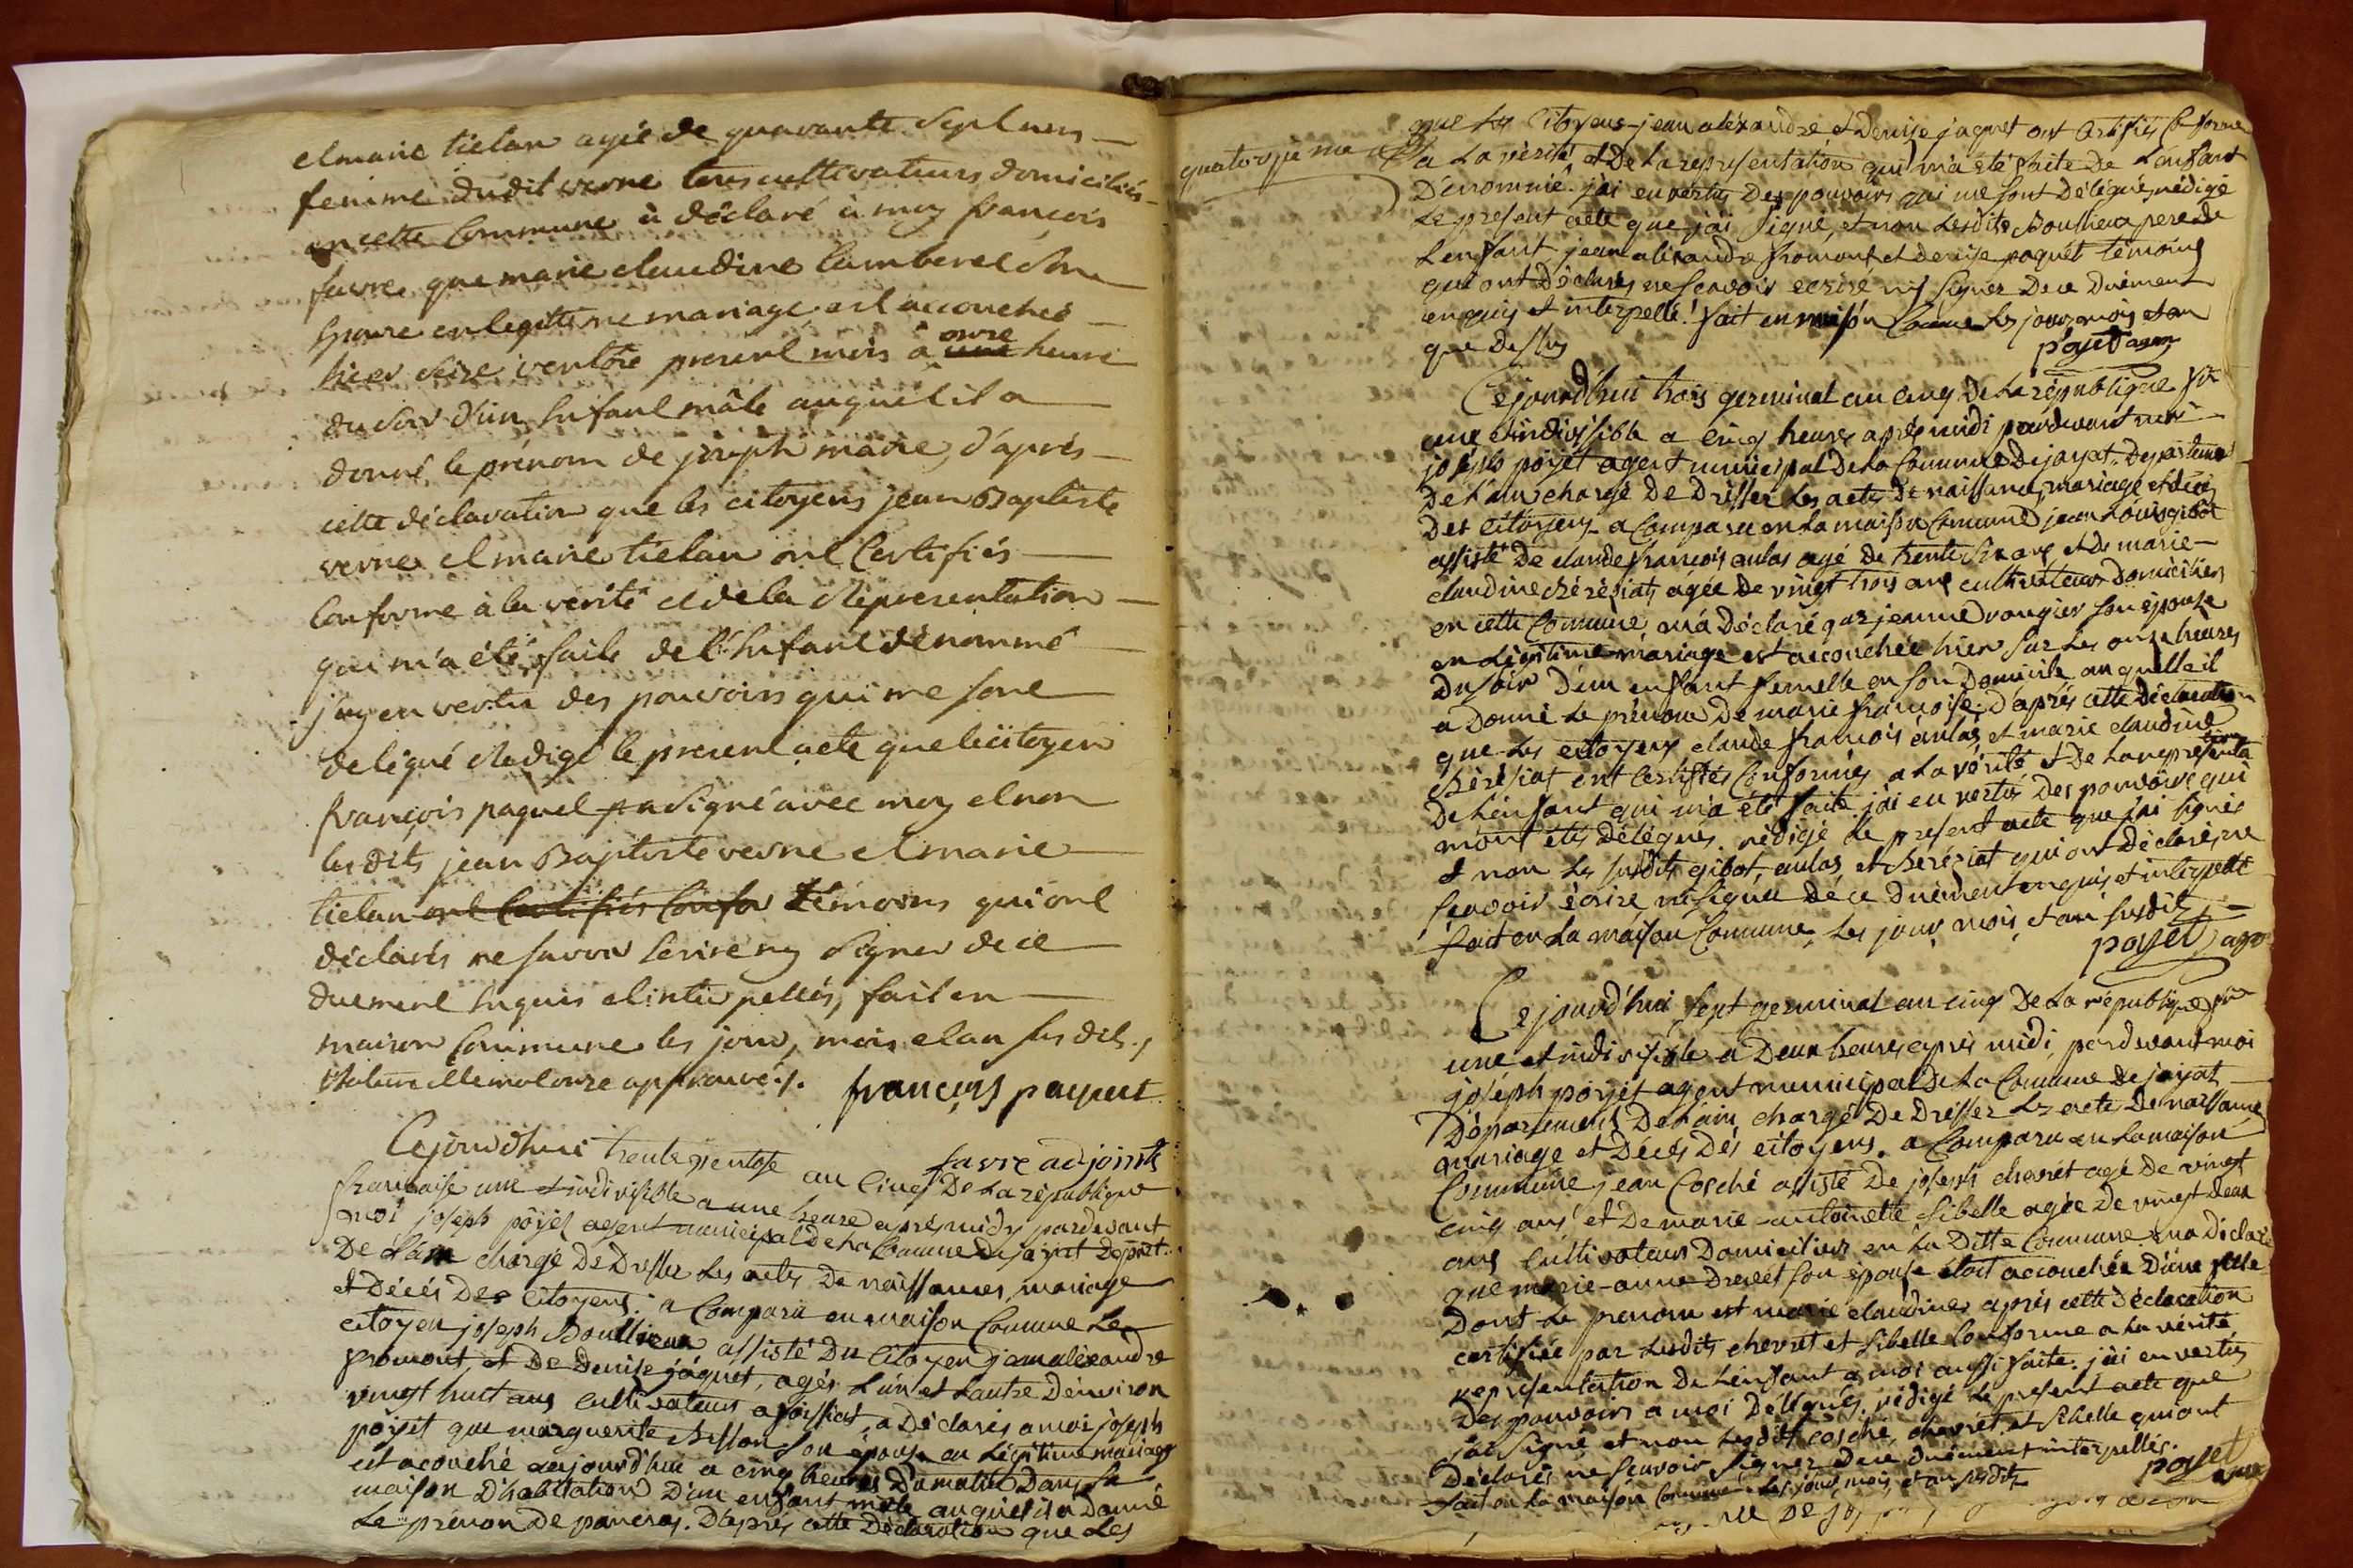 et marie tielan agée de quarante Sept ans
femme dudit verne tous cultivateurs domiciliés
en cette Commune à déclaré à moy françois
favre que marie claudine Son
Epouse en legitime mariage est accouchée
hier Seize ventôse present mois à une onze heure
du Soir d'un Enfant mâle auquel il a
donné le prénom de joseph marie, d'après
cette déclaration que les citoyens jean Baptiste
verne et marie tielan ont Certifiés
Conforme à la vérité et de la Representation
qui m'a été faite de l'Enfant dénommé
j'ay en vertu des pouvoirs qui me sont
delegué Redigé le present acte que le citoyen
françois paquet a Signé avec moy et non
les dits jean Baptiste verne et marie
tielan ont Certifiés Confor témoins qui ont
déclarés ne savoir Ecrire ny Signer de ce
duement Enquis et interpellés, fait en
maison Commune les jour, mois et an susdits,
Rature et le mot onze approuvé ./. françois paquet
favre adjoint
Cejourdhui trente ventose an Cinq De La république
francaise une et indivisible a une heure après midy pardevant
moi joseph poyet agent municipal De La Commune De jayat Depart.
De L'ain chargé De Dresser Les actes De naissances, mariage
et Décés Des Citoyens. a Comparu en maison Commune Le
citoyen joseph Boullieux assisté Du Citoyen jean alexandre
fromont, et De Denise jâquet, agés L'un et L'autre D'environ
vingt huit ans cultivateurs a foissiat, a Déclarés a moi joseph
poyet que marguerite Besson Son épouse en Légitime mariage
est acouché aujourd'hui a cinq heures Du matin Dans Sa
maison D'habitation D'un enfant mâle auquel il a Donné
Le prénom De pancras. D'après cette Déclaration que Les
quatorzieme
que Les Citoyens jean alexandre et Denise jaquet ont Certifiés Conforme
a La vérité, et De La représentation qui m'a été faite De L'enfant
Dénommé. j'ai en vertus Des pouvoirs qui me sont Délégués rédigé
Le present acte que j'ai Signé, et non Lesdits Boullieux pere de
L'enfant, jean alexandre fromont et denise paquet témoins
qui ont Déclarés ne Scavoir ecrire ny Signer De ce Duement
enquis et interpellé. fait en maison Comune Les jour, mois et an
que Dessus
poyet agen
Cejourd'hui trois germinal an cinq De La république fse
une et indivisible a cinq heures après midi pardevant moi
joseph poyet agent municipal De La Commune De jayat, Departement
De L'ain chargé De Dresser Les acte De naissance, mariage et décés
Des Citoyens a Comparu en La maison Comune jean Louis gibot
assisté De claude françois aulas agé De trente Six ans et De marie
claudine chérésiat, agée De vingt trois ans cultivateurs Domiciliés
en cette Commune m'a Déclaré que jeanne vougier son épouse
en Légitime mariage est accouchée hier Sur Les onze heures
Du soir D'un enfant femelle en son Domicile auquelle il
a Donné Le prénom De marie françoise; D'après cette Déclaration
que Les citoyens claude françois aulas, et marie claudine
chérésiat ont Certifiés Conformes a La vérité et De La représentation
De L'enfant qui m'a été faite, j'ai en vertus Des pouvoirs qui
m'ont étés Délégués rédigé Le present acte que j'ai Signé
et non Les susdits gibot, aulas, et cherésiat qui ont Déclarés ne
Scavoir écrire ni Signer De ce Duement enquis et interpellé
fait en La maison Commune, Les jour, mois, et an susdits,
poyet agen
Cejourd'hui Sept germinal an cinq De La république fse
une et indivisible a Deux heures après midi, pardevant moi
joseph poyet agent municipal De La Comune De jayat
Département De L'ain, chargé De Dresser Les acte De naissance
mariage et Décés Des citoyens. a Comparu en La maison
Commune jean Cosché assisté De joseph chevret agé De vingt
cinq ans et De marie antoinette Sibelle agée De vingt Deux
ans Cultivateurs Domiciliés en La Ditte Commune m'a Déclaré
que marie-anne Drevet son épouse étoit accouchée D'une fille
Dont Le prenom est marie claudine, après cette Déclaration
certifiée par Lesdits chevret et Sibelle Conforme a La vérité
representation De L'enfant a moi aussi faite. j'ai en vertus
Des pouvoirs a moi Délégués, rédigé Le present acte que
j'ai Signé et non Lesdits cosché, chevret, et Sibelle qui ont
Déclarés ne Scavoir Signer De ce Duement interpellés.
fait en La maison Commune Les jour, mois, et an susdits
poyet agen